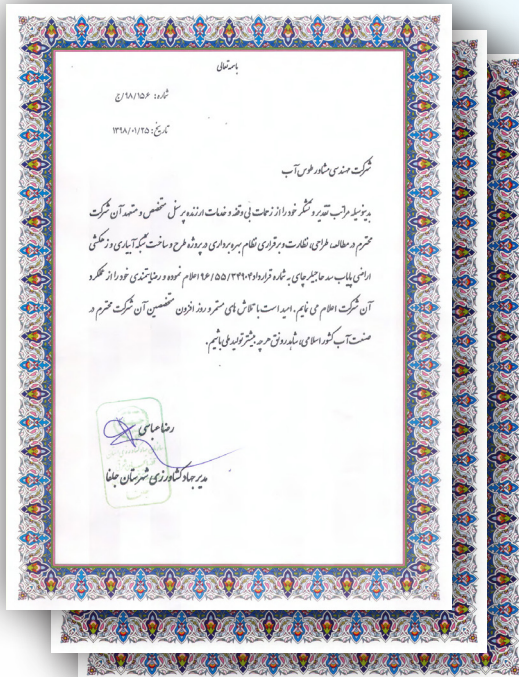 باسمه تعالی
شماره: ۹۸/۱۵۶/ج
تاریخ: ۱۳۹۸/۰۱/۲۵
شرکت مهندسی مشاور طوس آب
بدینوسیله مراتب تقدیر و تشکر خود را از زحمات بی وقفه و خدمات ارزنده پرسنل متخصص و متعهد آن شرکت
محترم در مطالعه، طراحی، نظارت و برقراری نظام بهره برداری در پروژه طرح و ساخت شبکه آبیاری و زهکشی
اراضی پایاب سد حاجیلرچای به شماره قرارداد ۹۶/۵۵/۳۴۹۰۴ اعلام نموده و رضایتمندی خود را از عملکرد
آن شرکت اعلام می نمایم. امید است با تلاش های مستمر و روز افزون متخصصین آن شرکت محترم در
صنعت آب کشور اسلامی، شاهد رونق هر چه بیشتر تولید ملی باشیم.
رضا عباسی
مدیر جهاد کشاورزی شهرستان جلفا